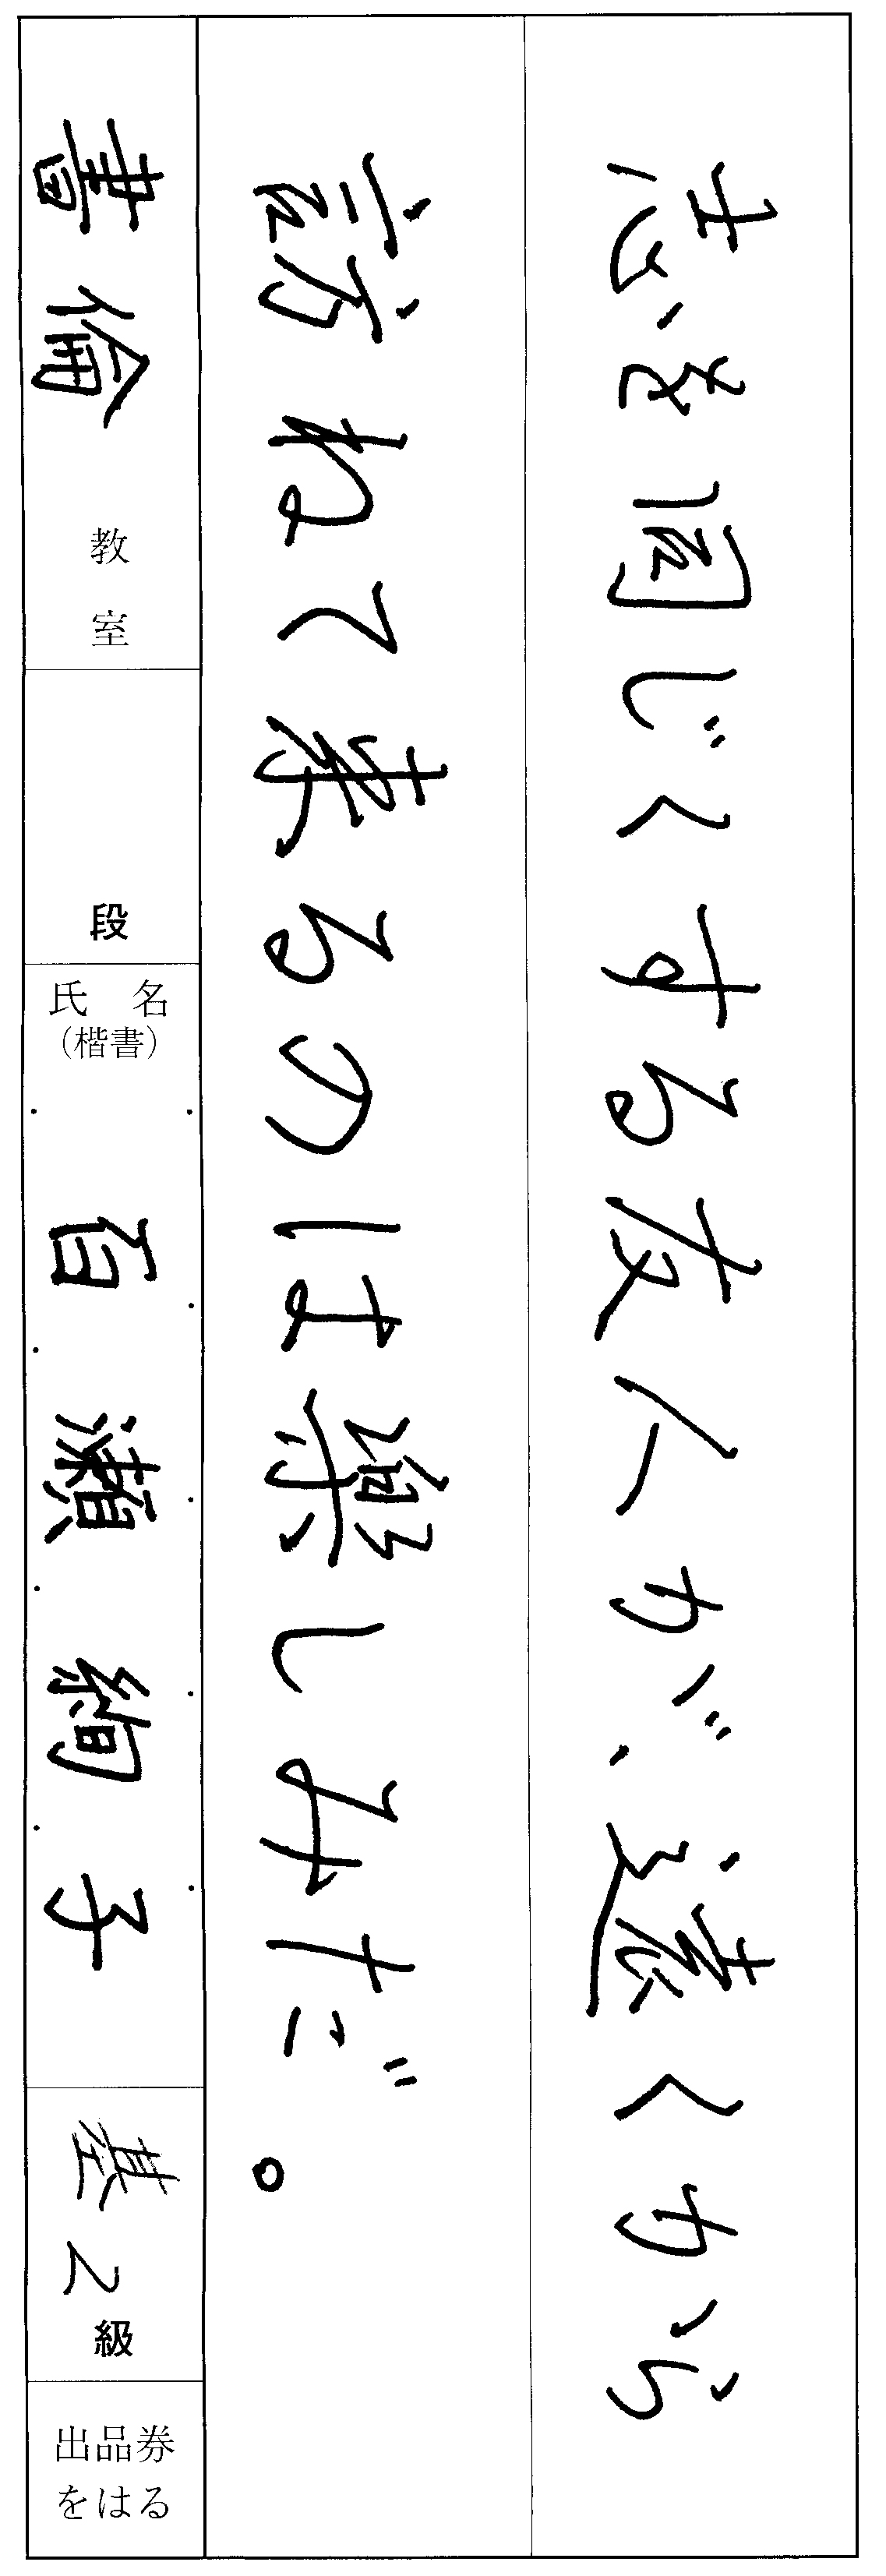 志を同じくする友人が、遠くから
訪ねて来るのは楽しみだ。
書倫 教室
段
氏名
(楷書)
百瀬絢子
基乙 級
出品券
をはる